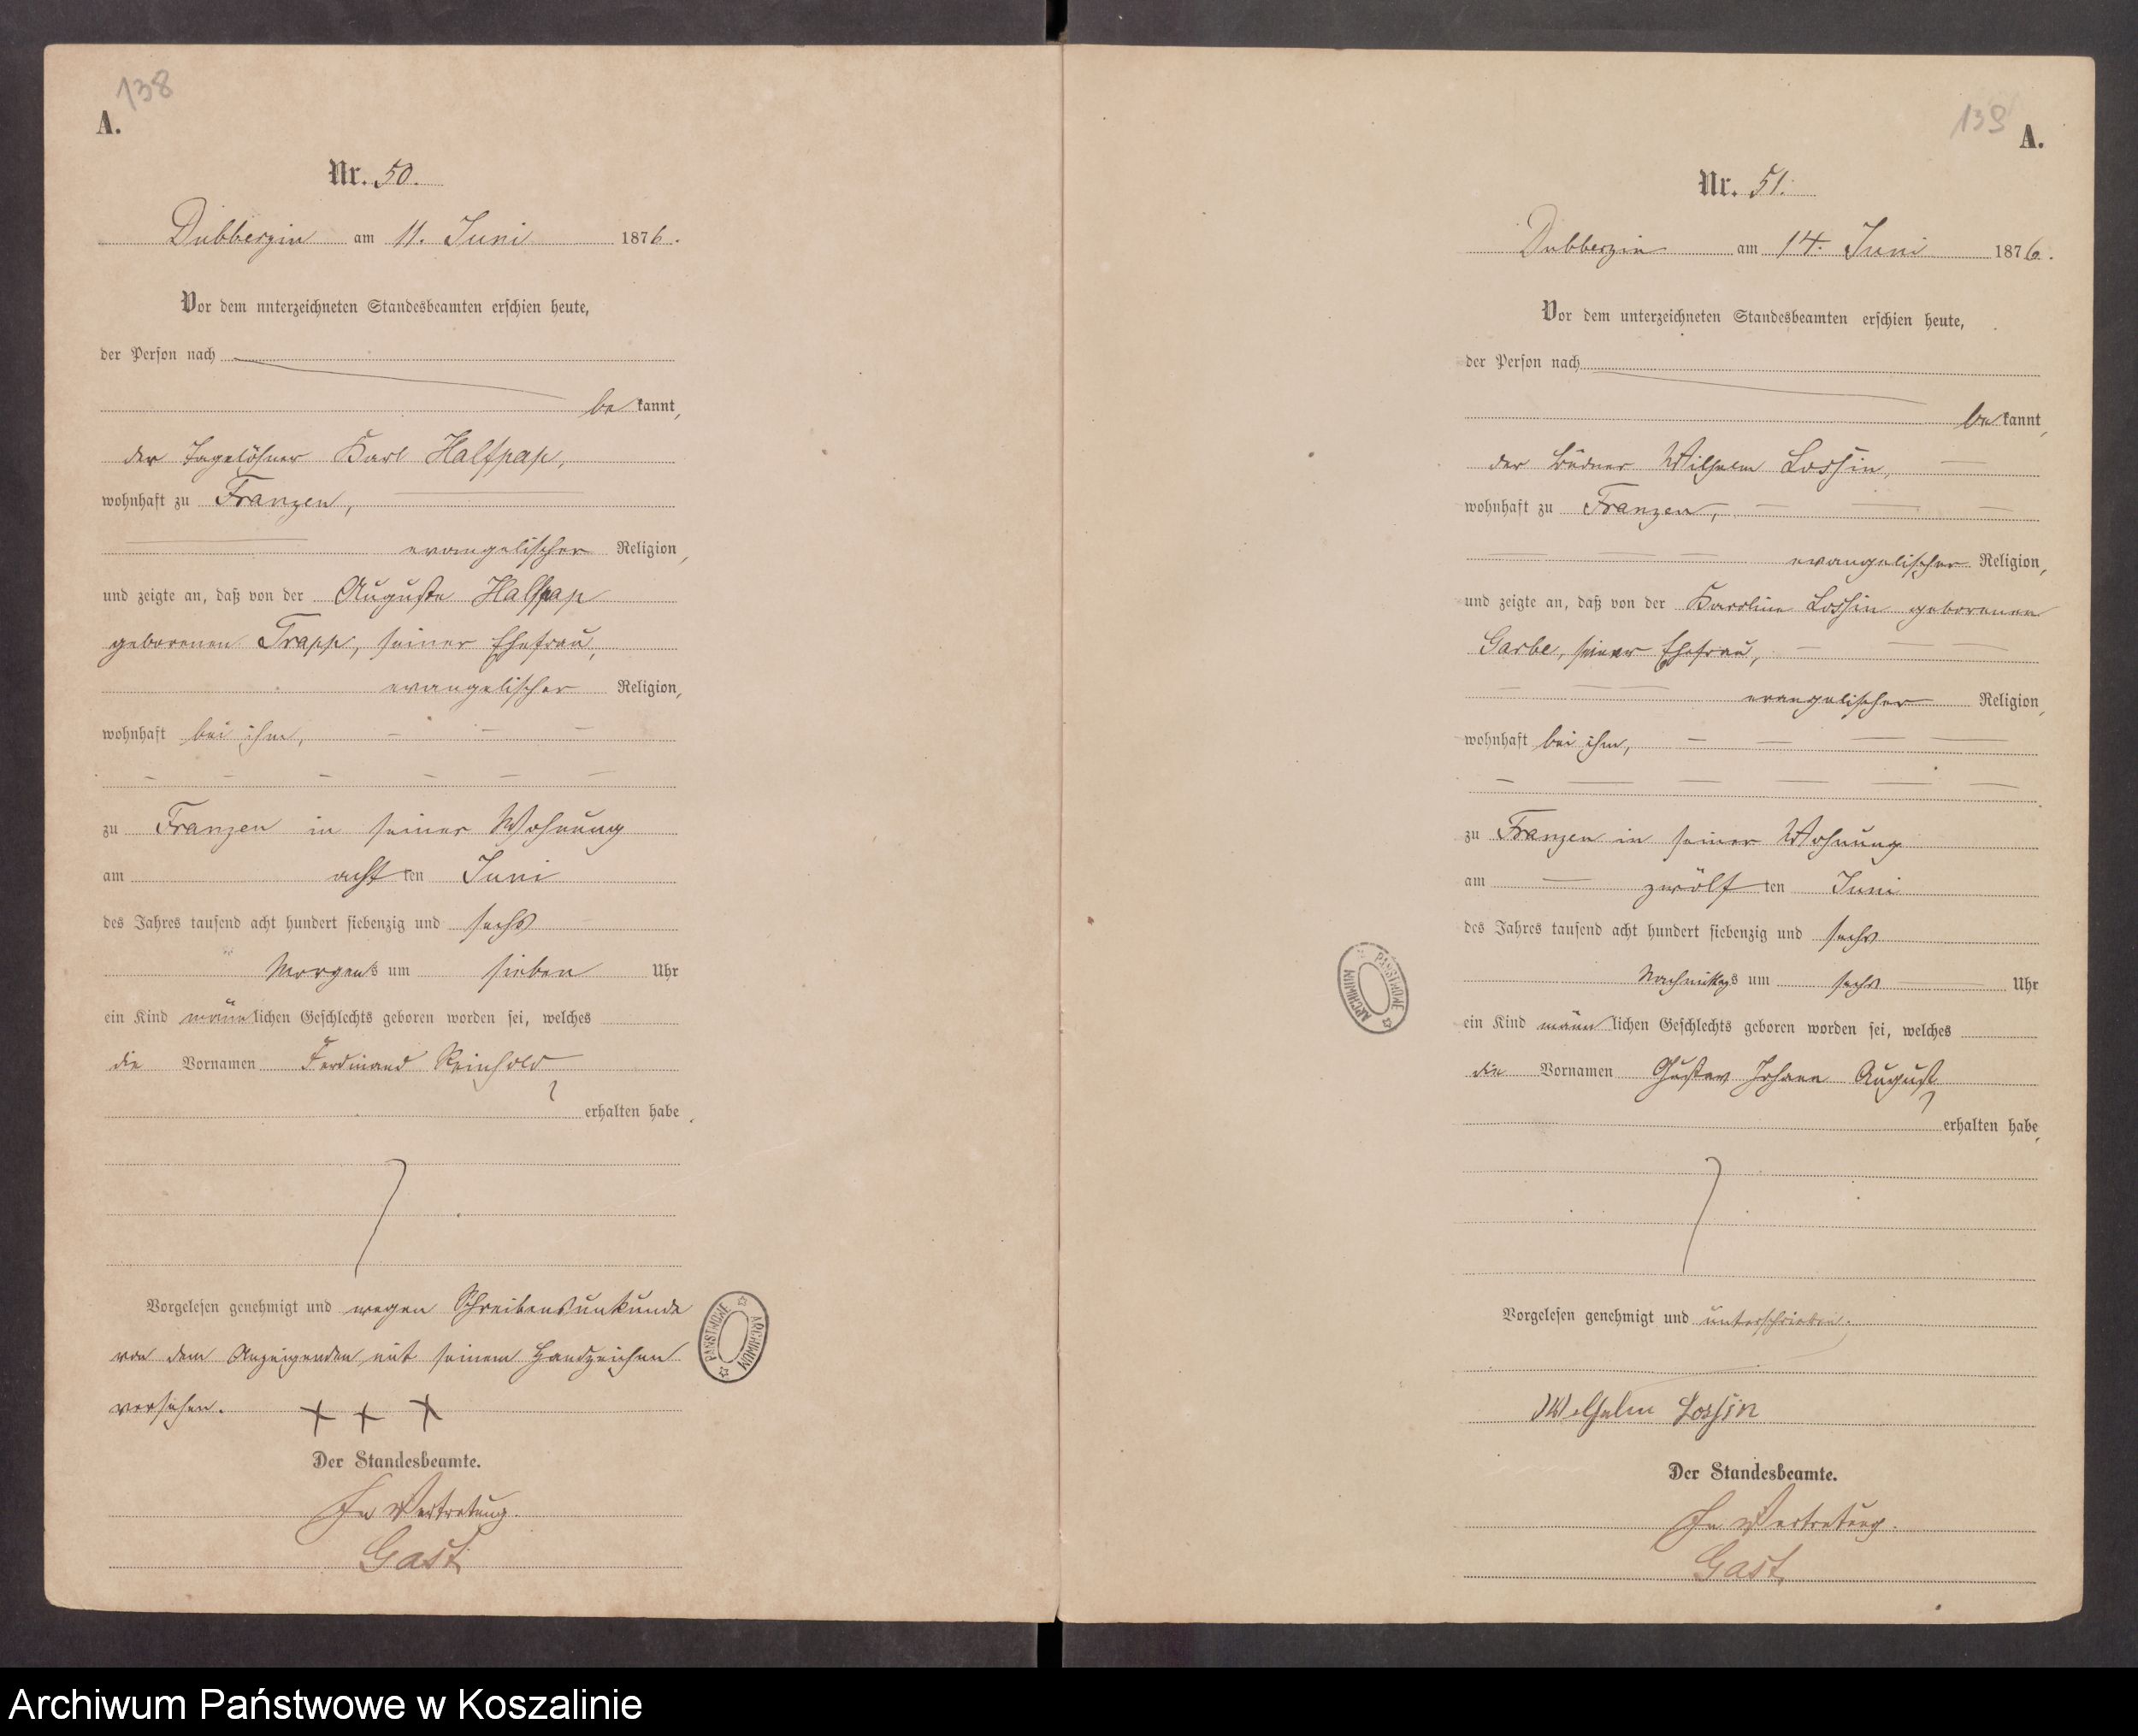 138
A.
Nr. 50.
Dubberzin am 11. Juni 1876.
Vor dem unterzeichneten Standesbeamten erschien heute,
der Person nach
bekannt,
der Tagelöhner Karl Halfpap,
wohnhaft zu Franzen,
evangelischer Religion,
und zeigte an, daß von der Auguste Halfpap
geborenen Trapp, seiner Ehefrau,
evangelischer Religion,
wohnhaft bei ihm,
zu Franzen in seiner Wohnung
am achten Juni
des Jahres tausend acht hundert siebenzig und sechs
Morgens um sieben Uhr
ein Kind männlichen Geschlechts geboren worden sei, welches
die Vornamen Ferdinand Reinhold
erhalten habe.
Vorgelesen genehmigt und wegen Schreibensunkunde
von dem Anzeigenden mit seinem Handzeichen
versehen. + + +
Der Standesbeamte.
In Vertretung.
Gast
PAŃSTWOWE ARCHIWUM
139
A.
Nr. 51.
Dubberzin am 14. Juni 1876.
Vor dem unterzeichneten Standesbeamten erschien heute,
der Person nach
bekannt,
der Büdner Wilhelm Lossin,
wohnhaft zu Franzen,
evangelischer Religion,
und zeigte an, daß von der Karoline Lossin geborenen
Garbe, seiner Ehefrau,
evangelischer Religion,
wohnhaft bei ihm,
zu Franzen in seiner Wohnung
am zwölften Juni
des Jahres tausend acht hundert siebenzig und sechs
Nachmittags um sechs Uhr
ein Kind männlichen Geschlechts geboren worden sei, welches
die Vornamen Gustav Johann August
erhalten habe,
Vorgelesen genehmigt und unterschrieben.
Wilhelm Lossin
Der Standesbeamte.
In Vertretung.
Gast
PAŃSTWOWE ARCHIWUM
Archiwum Państwowe w Koszalinie